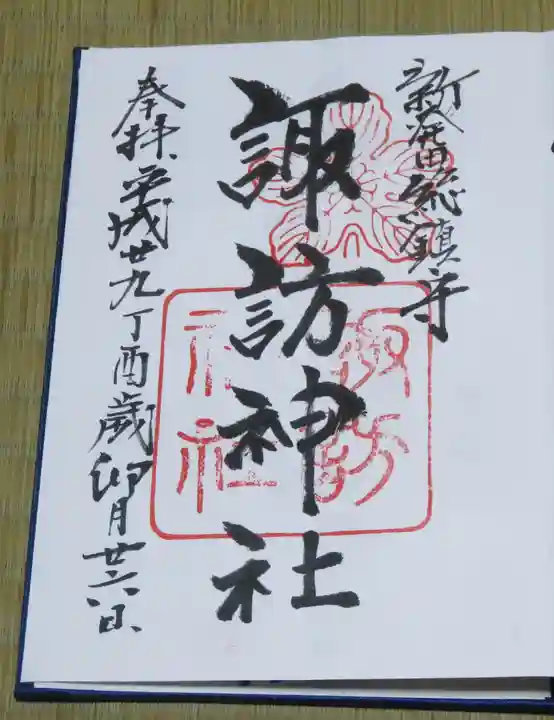 新発田総鎮守
諏訪神社
諏訪神社
奉拝 平成廿九丁酉歳卯月廿六日